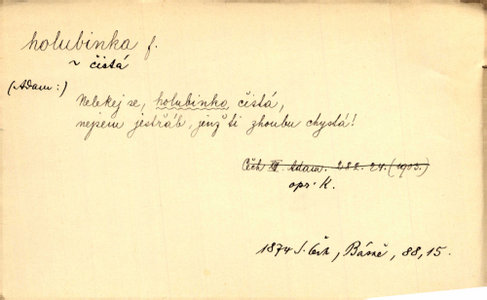 holubinka f.
~ čistá
(Adam:)
Nelekej se, holubinko čistá,
nejsem jestřáb, jenž ti zhoubu chystá!
Čech III. Adam. 282. 24. (1903.)
opr. K.
1874 S. Čech, Básně, 88,15.